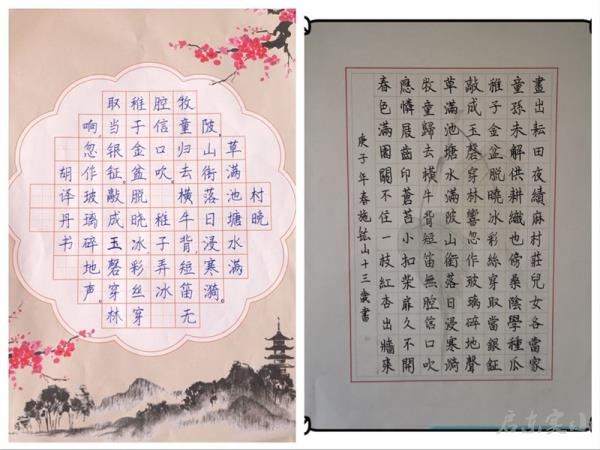 村晚
草满池塘水满
陂山衔落日浸寒漪。
牧童归去横牛背短笛无
腔信口吹。稚子弄冰
稚子金盆脱晓冰彩丝穿
取当银钲敲成玉磬穿林
响。忽作玻璃碎地声。
胡译丹书
畫出耘田夜績麻村莊兒女各當家
童孫未解供耕織也傍桑陰學種瓜
稚子金盆脱曉冰彩絲穿取當銀鉦
敲成玉磬穿林響忽作玻璃碎地聲
草滿池塘水滿陂山銜落日浸寒漪
牧童歸去橫牛背短笛無腔信口吹
應憐屐齒印蒼苔小扣柴扉久不開
春色滿園關不住一枝紅杏出牆來
庚子年春施山十三歲書
启东实小